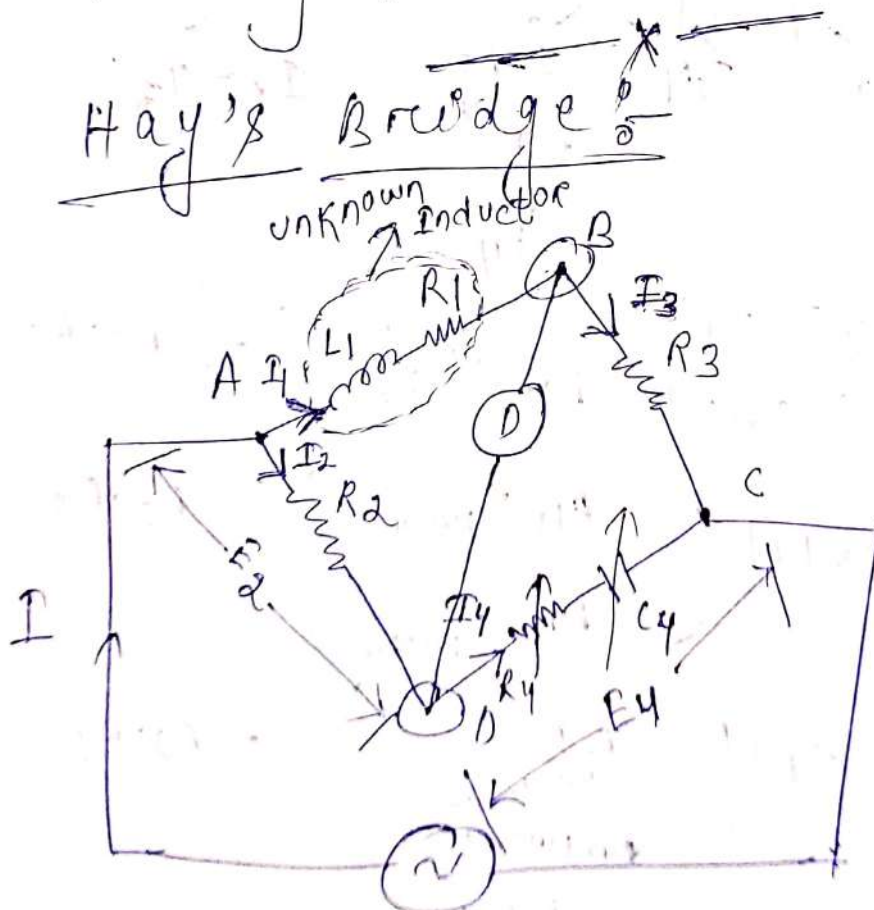 Hay's Bridge :
unknown
Inductor
B
L1 R1
I3
A I1
R3
D
I2
R2
C
E2
I
I4
R4
C4
D
E4
~